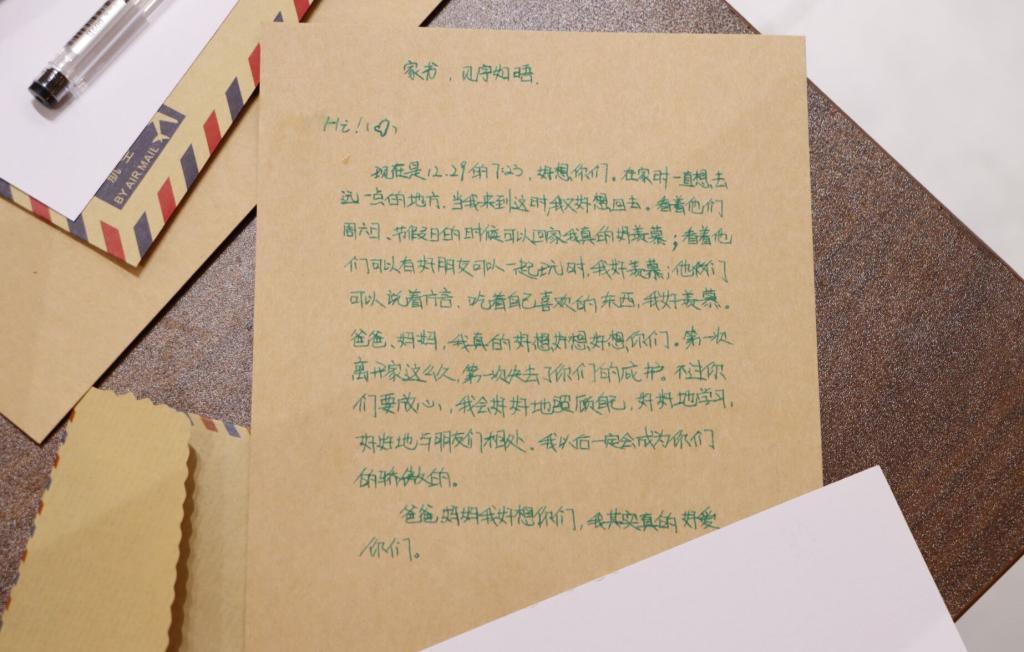 家书，见字如晤.
Hi!
现在是12.29的7:23，好想你们。在家时一直想去
远一点的地方，当我来到这时，我又好想回去。看着他们
周六日、节假日的时候可以回家我真的好羡慕；看着他
们可以有好朋友可以一起玩时，我好羡慕；他们
可以说着方言、吃着自己喜欢的东西，我好羡慕。
爸爸、妈妈，我真的好想好想好想你们。第一次
离开家这么久，第一次失去了你们的庇护。不过你
们要放心，我会好好地照顾自己，好好地学习，
好好地与朋友们相处。我以后一定会成为你们
的骄傲的。
爸爸妈妈我好想你们，我其实真的好爱
你们。
航空
BY AIR MAIL